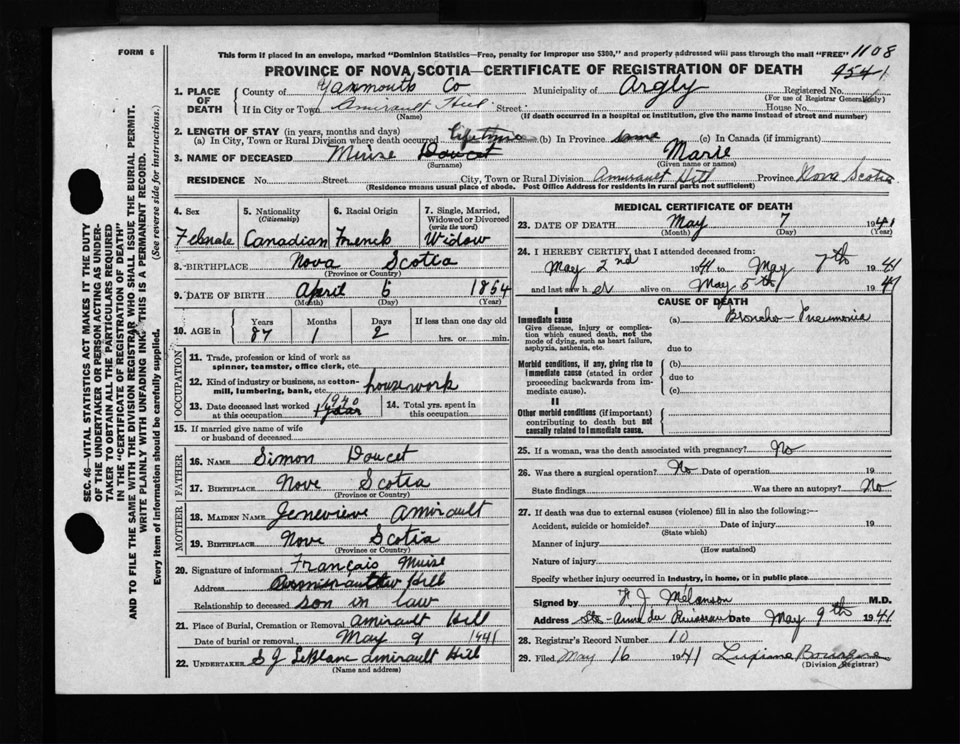 FORM 6
This form if placed in an envelope, marked "Dominion Statistics—Free, penalty for improper use $300," and properly addressed will pass through the mail "FREE"
1108
PROVINCE OF NOVA SCOTIA—CERTIFICATE OF REGISTRATION OF DEATH
9541
1. PLACE OF DEATH
County of Yarmouth Co Municipality of Argly Registered No.
(For use of Registrar Generally)
If in City or Town Amirault Hill Street House No.
(Name) (If death occurred in a hospital or institution, give the name instead of street and number)
2. LENGTH OF STAY (in years, months and days)
(a) In City, Town or Rural Division where death occurred lifetime (b) In Province same (c) In Canada (if immigrant)
3. NAME OF DECEASED Muise Doucet Marie
(Surname) (Given name or names)
RESIDENCE No. Street City, Town or Rural Division Amirault Hill Province Nova Scotia
(Residence means usual place of abode. Post Office Address for residents in rural parts not sufficient)
4. Sex
Female
5. Nationality
(Citizenship)
Canadian
6. Racial Origin
French
7. Single, Married, Widowed or Divorced
(write the word)
Widow
8. BIRTHPLACE Nova Scotia
(Province or Country)
9. DATE OF BIRTH April 5 1854
(Month) (Day) (Year)
10. AGE in
Years Months Days If less than one day old
87 1 2 hrs. or min.
OCCUPATION
11. Trade, profession or kind of work as
spinner, teamster, office clerk, etc.
12. Kind of industry or business, as cotton-
mill, lumbering, bank, etc. housework
13. Date deceased last worked 1940
at this occupation 1 year
14. Total yrs. spent in
this occupation
15. If married give name of wife
or husband of deceased
FATHER
16. NAME Simon Doucet
17. BIRTHPLACE Nove Scotia
(Province or Country)
MOTHER
18. MAIDEN NAME Genevieve Amirault
19. BIRTHPLACE Nove Scotia
(Province or Country)
20. Signature of informant Français Muise
Address Hill
Relationship to deceased son in law
21. Place of Burial, Cremation or Removal Amirault Hill
Date of burial or removal May 9 1941
22. UNDERTAKER S J LeBlanc Amirault Hill
(Name and address)
MEDICAL CERTIFICATE OF DEATH
23. DATE OF DEATH May 7 1941
(Month) (Day) (Year)
24. I HEREBY CERTIFY, that I attended deceased from:
May 2nd 1941 to May 7th 1941
and last saw h er alive on May 5th 1941
CAUSE OF DEATH
I
Immediate cause (a) Broncho-Pneumonia
Give disease, injury or complica-
tion which caused death, not the
mode of dying, such as heart failure,
asphyxia, asthenia, etc. due to
Morbid conditions, if any, giving rise to (b)
immediate cause (stated in order
proceeding backwards from im-
mediate cause). due to
(c)
II
Other morbid conditions (if important)
contributing to death but not
causally related to immediate cause.
25. If a woman, was the death associated with pregnancy? No
26. Was there a surgical operation? No Date of operation 19
State findings Was there an autopsy? No
27. If death was due to external causes (violence) fill in also the following:—
Accident, suicide or homicide? Date of injury 19
(State which)
Manner of injury
(How sustained)
Nature of injury
Specify whether injury occurred in industry, in home, or in public place
Signed by J Mélanson M.D.
Address Ste-Anne du Ruisseau Date May 9th 1941
28. Registrar's Record Number 10
29. Filed May 16 1941
(Division Registrar)
SEC. 46—VITAL STATISTICS ACT MAKES IT THE DUTY
OF THE UNDERTAKER OR PERSON ACTING AS UNDER-
TAKER TO OBTAIN ALL THE PARTICULARS REQUIRED
IN THE "CERTIFICATE OF REGISTRATION OF DEATH"
AND TO FILE THE SAME WITH THE DIVISION REGISTRAR WHO SHALL ISSUE THE BURIAL PERMIT.
WRITE PLAINLY WITH UNFADING INK. THIS IS A PERMANENT RECORD.
Every item of information should be carefully supplied. (See reverse side for instructions.)